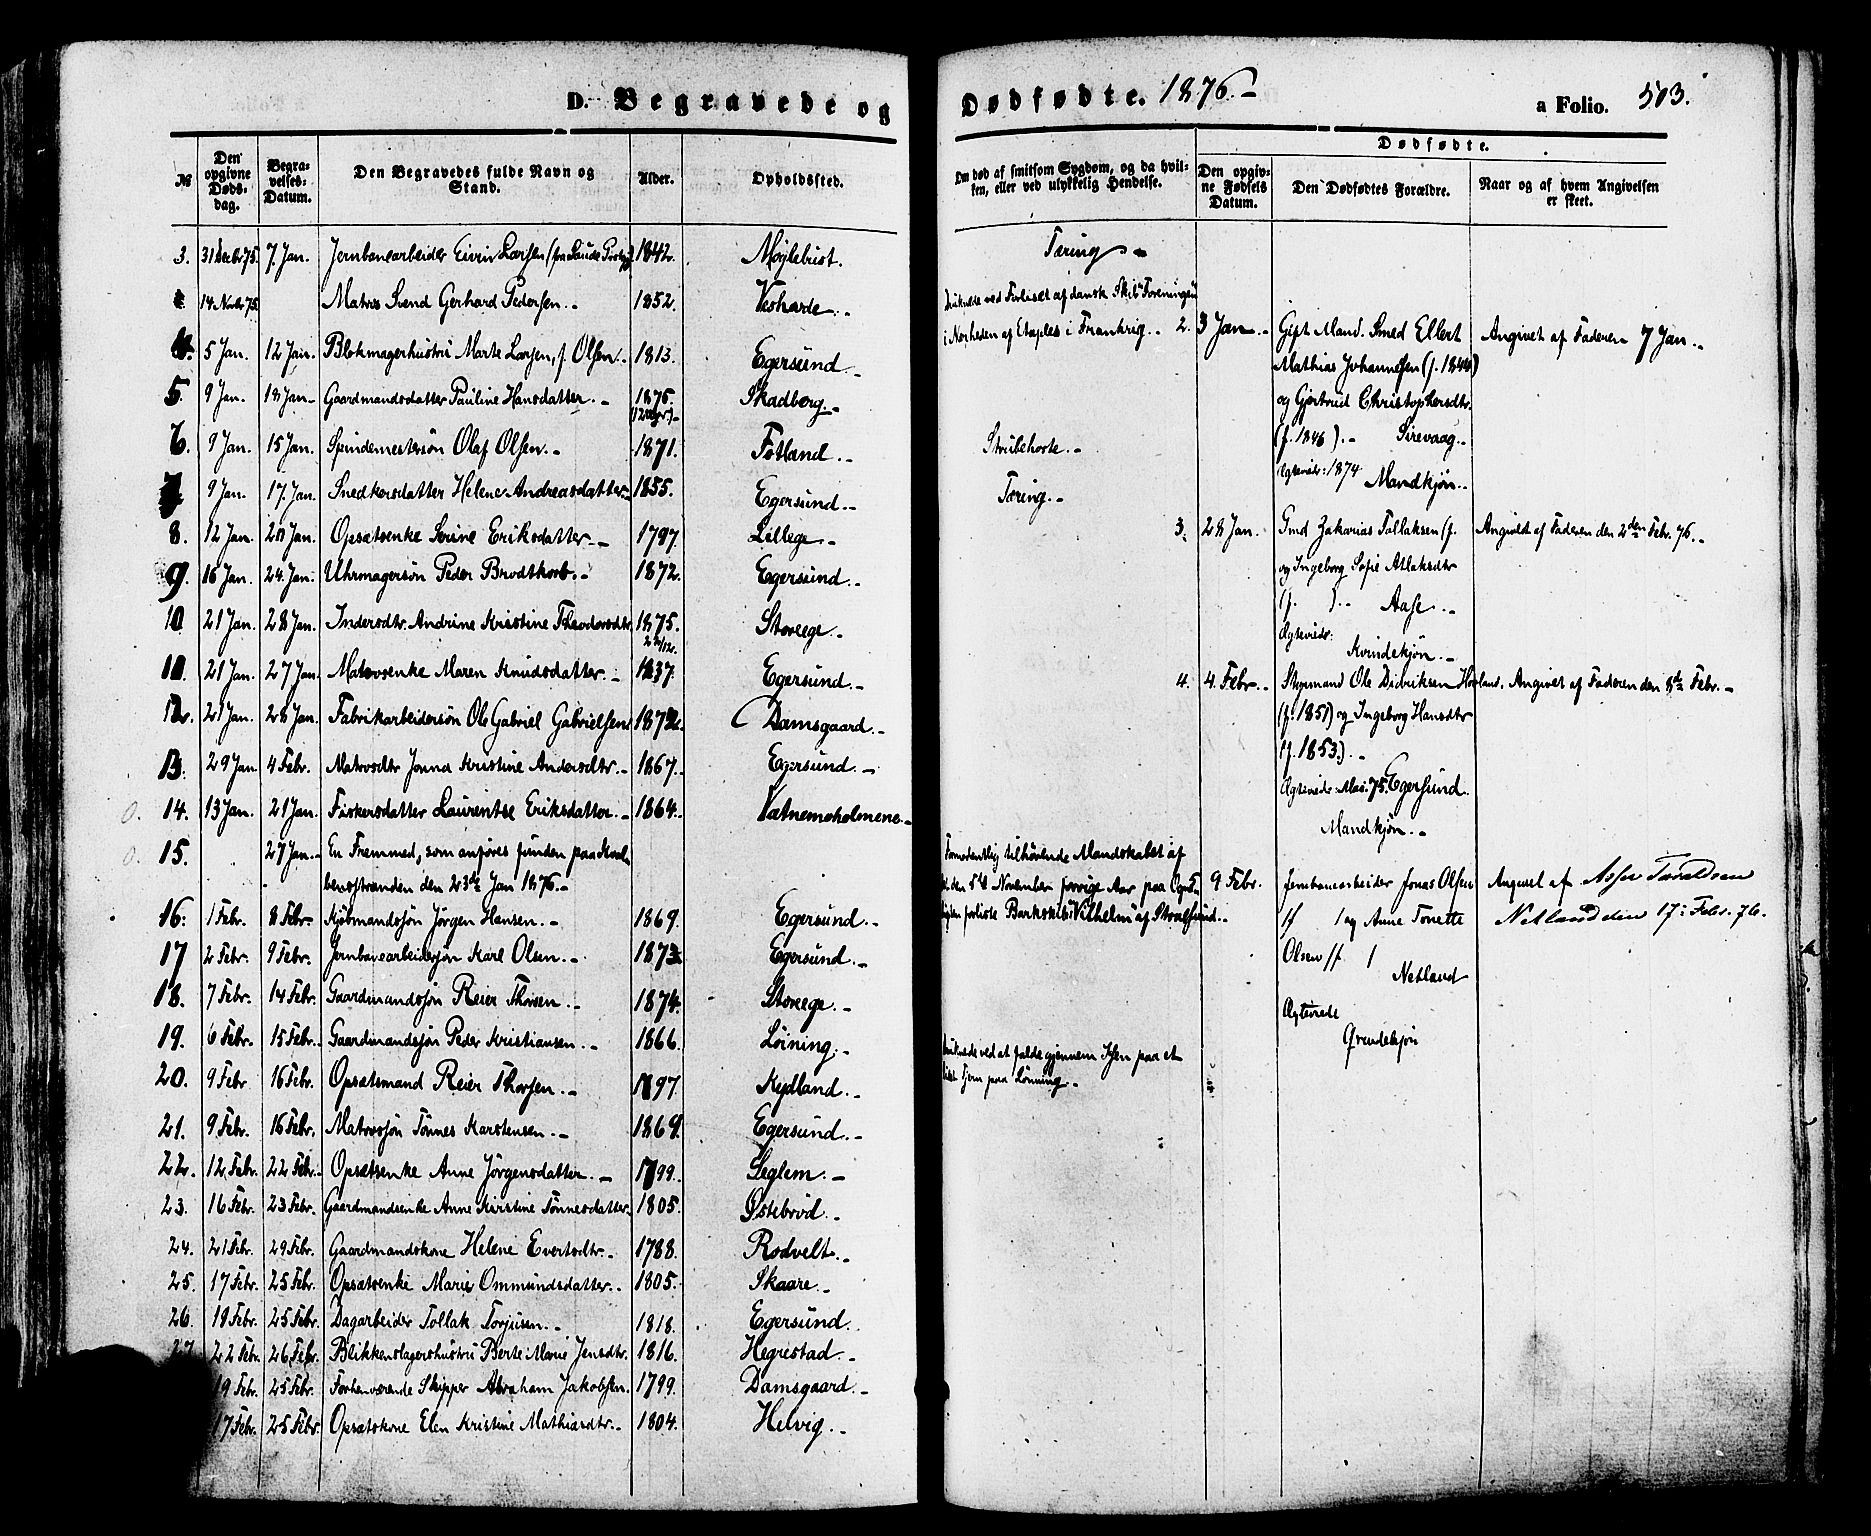 D. Begravede og Dødfødte. 1876.-
a Folio. 503.
№ Den opgivne Døds-dag. Begra-velses-Datum. Den Begravedes fulde Navn og Stand. Alder. Opholdssted.
Om død af smitsom Sygdom, og da hvil-ken, eller ved ulykkelig Hendelse.
Dødfødte.
Den opgiv-ne Fødsels Datum. Den Dødfødtes Forældre. Naar og af hvem Angivelsen er skeet.
3. 31 Decbr 75. 7. Jan. Jernbanearbeider Eivin Larsen (fra Saude) 1842. Møjlebust.
14 Novbr 75. Matros Svend Gerhard Pedersen.- 1852. Vesharde.-
4. 5 Jan. 12 Jan. Blokmagerhustru Marte Larsen, f. Olsen.- 1813. Egersund.-
5. 9 Jan. 13 Jan- Gaardmandsdatter Pauline Hansdatter.- 1875. Skadberg.-
6. 9 Jan. 15 Jan. Spindemestersøn Olaf Olsen.- 1871. Fotland.-
7. 9 Jan. 17. Jan. Snedkersdatter Helene Andreasdatter- 1855. Egersund.-
8. 12 Jan. 20 Jan. Opsætsenke Serine Eriksdatter.- 1797. Lillege.-
9. 16 Jan. 24. Jan. Uhrmagersøn Peder Brodtkorb.- 1872. Egersund.-
10 21 Jan. 28 Jan. Indersdtr. Andrine Kristine Theodorsdtr. 1875. 22/12. Storeege.-
11. 21 Jan. 27 Jan. Matrosenke Maren Knudsdatter.- 1837. Egersund.-
12. 21 Jan. 28 Jan. Fabrikarbeidersøn Ole Gabriel Gabrielsen 1872. Damsgaard.-
13. 29 Jan 4 Febr. Matrosdtr Jonna Kristine Andersdtr.- 1867. Egersund.-
0. 14. 13 Jan. 21 Jan. Fiskersdatter Laurentse Eriksdatter.- 1864. Vatnemoholmene.-
0. 15. 27 Jan.- En Fremmed, som anføres funden paa
den 23de Jan 1876.-
16. 1 Febr. 8 Febr- Kjøbmandssøn Jörgen Hansen.- 1869. Egersund.-
17 2 Febr. 9 Febr. Jernbanearbeidersøn Karl Olsen.- 1873. Egersund.-
18. 7 Febr. 14 Febr. Gaardmandssøn Reier Thorsen.- 1874. Storeege.-
19. 6 Febr. 15 Febr. Gaardmandssøn Peder Kristiansen.- 1866. Löining.-
20. 9 Febr. 16 Febr. Opsætsmand Reier Thorsen.- 1797. Kydland.-
21. 9 Febr. 16 Febr. Matrossøn Tönnes Karstensen.- 1869. Egersund.-
22. 12 Febr. 22 Febr. Opsætsenke Anne Jörgensdatter.- 1799. Seglem.-
23. 16 Febr. 23 Febr. Gaardmandsenke Anne Kristine Tönnesdatter. 1805. Østebrød.-
24. 21 Febr. 29 Febr. Gaardmandskone Helene Evertsdtr.- 1788. Rodvelt.-
25. 17 Febr. 25 Febr. Opsætsenke Marie Ommundsdatter.- 1805. Skaare.-
26. 19 Febr. 25 Febr. Dagarbeider Tollak Torjusen.- 1818. Egersund.
27 22 Febr. 26 Febr. Blikkenslagerhustru Berte Marie Jensdtr. 1816. Hegrestad.-
19 Febr. 25 Febr. Forhenværende Skipper Abraham Jakobsen. 1799. Damsgaard.-
17 Febr. 25 Febr. Opsætskone Elen Kristine Mathiasdtr.- 1804. Helvig.-
Tæring.-
Druknede ved Forliset af dansk Skib
i Nærheden af Etaples i Frankrig.-
Strubehoste.-
Tæring.-
Formodentlig tilhörende Mandskabet af
den 5te November forrige Aar paa
forliste Barkskib "Vilhelm" af Stralsund.-
Druknede ved at falde gjennem Isen paa et
lidet Tjern paa Lönning.-
2. 3 Jan.- Gift Mand. Smed Elbert Angivet af Faderen 7 Jan.-
Mathias Johannesen (f. 1844)
og Gjertrud Christophersdtr.
(f. 1846).- Sirevaag.-
Ægteviede: 1874 Mandkjön.-
3. 28 Jan. Gmd Zakarias Tollaksen (f. Angivet af Faderen den 2den Febr. 76.-
og Ingeborg Sofie Atlaksdtr
(f. ).- Aase.-
Ægteviede:
Kvindekjön.-
4. 4. Febr.- Styrmand Ole Didriksen Hovland. Angivet af Faderen den 8de Febr.-
(f. 1851) og Ingeborg Hansdtr
(f. 1853).-
Ægteviede: 75. Egersund.
Mandkjön.-
9 Febr. Jernbanearbeider Jonas Olsen Angivet af Asser Taraldsen
(f ) og Anne Tonette Netland den 17: Febr. 76.
Olsen (f )
Netland
Ægteviede
Qvindekjön